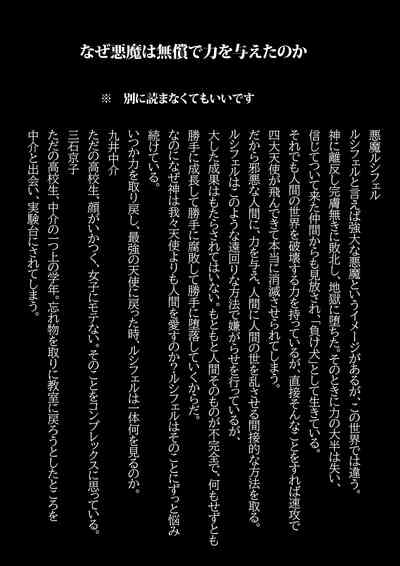 なぜ悪魔は無償で力を与えたのか
※　別に読まなくてもいいです
悪魔ルシフェル
ルシフェルと言えば強大な悪魔というイメージがあるが、この世界では違う。
神に離反し完膚無きに敗北し、地獄に堕ちた。そのときに力の大半は失い、
信じてついて来た仲間からも見放され、「負け犬」として生きている。
それでも人間の世界を破壊する力を持っているが、直接そんなことをすれば速攻で
四大天使が飛んできて本当に消滅させられてしまう。
だから邪悪な人間に、力を与え、人間に人間の世を乱させる間接的な方法を取る。
ルシフェルはこのような遠回りな方法で嫌がらせを行っているが、
大した成果はもたらされてはいない。もともと人間そのものが不完全で、何もせずとも
勝手に成長して勝手に腐敗して勝手に堕落していくからだ。
なのになぜ神は我々天使よりも人間を愛すのか？ルシフェルはそのことにずっと悩み
続けている。
いつか力を取り戻し、最強の天使に戻った時、ルシフェルは一体何を見るのか。
九井中介
ただの高校生、顔がいかつく、女子にモテない。そのことをコンプレックスに思っている。
三石京子
ただの高校生、中介の二つ上の学年。忘れ物を取りに教室に戻ろうとしたところを
中介と出会い、実験台にされてしまう。